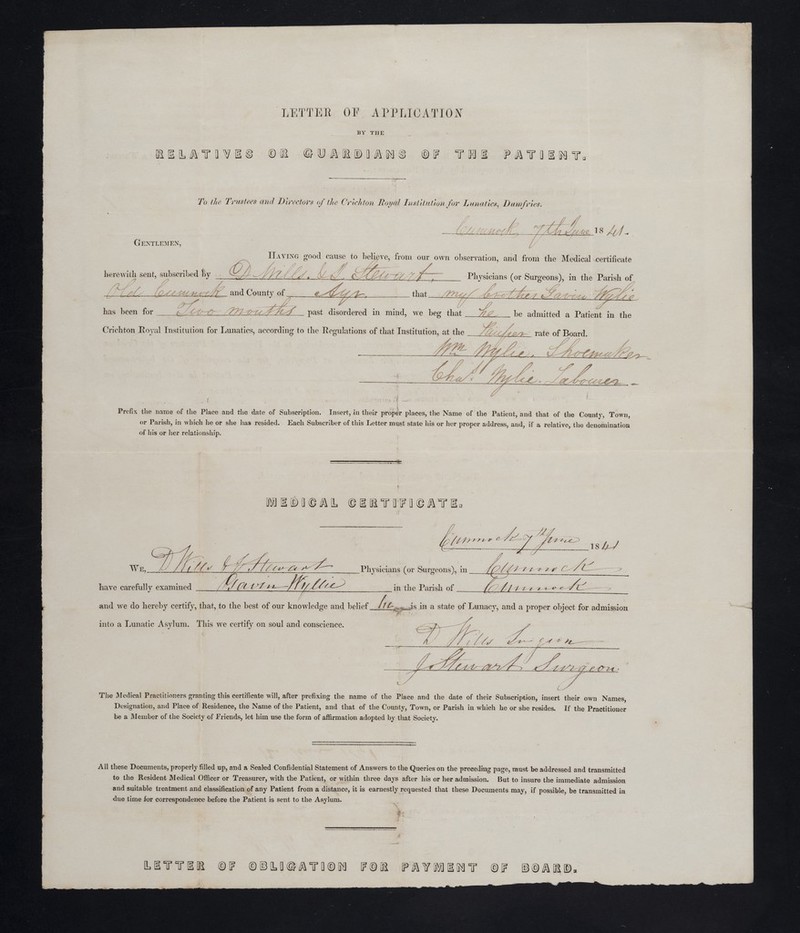 LETTER OF APPLICATION
BY THE
RELATIVES OR GUARDIANS OF THE PATIENT.
To the Trustees and Directors of the Crichton Royal Institution for Lunatics, Dumfries.
Cumnock, 7th June 1841.
GENTLEMEN,
HAVING good cause to believe, from our own observation, and from the Medical certificate
herewith sent, subscribed by D Wills & J. Stewart. Physicians (or Surgeons), in the Parish of
Old Cumnock and County of Ayr. that my brother Gavin Wylie
has been for Two months past disordered in mind, we beg that he be admitted a Patient in the
Crichton Royal Institution for Lunatics, according to the Regulations of that Institution, at the rate of Board.
Wm Wylie. Shoemaker.
Chas. Wylie. Labourer.
Prefix the name of the Place and the date of Subscription. Insert, in their proper places, the Name of the Patient, and that of the County, Town,
or Parish, in which he or she has resided. Each Subscriber of this Letter must state his or her proper address, and, if a relative, the denomination
of his or her relationship.
MEDICAL CERTIFICATE.
Cumnock 7th June 1841
WE, D Wills & J Stewart Physicians (or Surgeons), in Cumnock
have carefully examined Gavin Wyllie in the Parish of Cumnock
and we do hereby certify, that, to the best of our knowledge and belief he is in a state of Lunacy, and a proper object for admission
into a Lunatic Asylum. This we certify on soul and conscience.
D Wills Surgeon
J Stewart Surgeon
The Medical Practitioners granting this certificate will, after prefixing the name of the Place and the date of their Subscription, insert their own Names,
Designation, and Place of Residence, the Name of the Patient, and that of the County, Town, or Parish in which he or she resides. If the Practitioner
be a Member of the Society of Friends, let him use the form of affirmation adopted by that Society.
All these Documents, properly filled up, and a Sealed Confidential Statement of Answers to the Queries on the preceding page, must be addressed and transmitted
to the Resident Medical Officer or Treasurer, with the Patient, or within three days after his or her admission. But to insure the immediate admission
and suitable treatment and classification of any Patient from a distance, it is earnestly requested that these Documents may, if possible, be transmitted in
due time for correspondence before the Patient is sent to the Asylum.
LETTER OF OBLIGATION FOR PAYMENT OF BOARD.